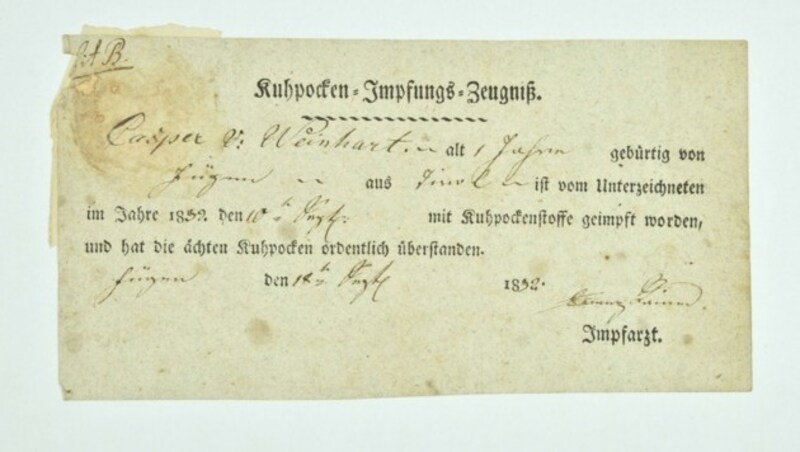 Lit B.
Kuhpocken-Impfungs-Zeugniß.
Casper v: Weinhart alt 1 Jahre gebürtig von
Fügen aus Tirol ist vom Unterzeichneten
im Jahre 1832. den 10 Sept: mit Kuhpockenstoffe geimpft worden,
und hat die ächten Kuhpocken ordentlich überstanden.
Fügen den 18 Sept 1832.
Impfarzt.